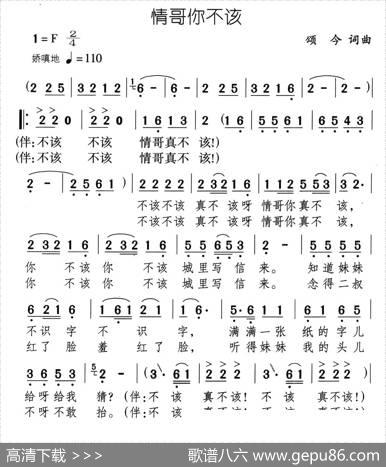 情哥你不该
1=F 2/4
颂 今 词曲
娇嗔地 ♩=110
(2 2 5 | 3 2 1 6 | 2 2 5 | 3 2 1 2 | 6 - | 6 - | 2 2 5 | 3 2 1 6 | 2 - | 2 - )|
2 2 0 | 2 2 0 | 1 6 1 2 | 1 3 | 2 (1 6 | 2 2 5 | 5 6 6 1 | 6 5 4 3 |
(伴:不该 不该 情哥真不 该!)
(伴:不该 不该 情哥真不 该!)
2 - | 2 5 6 1 ) | 2 2 2 2 | 2 3 2 1 6 | 1 1 2 5 5 3 | 3 2· |
不该不该 真不 该呀 情哥你真不 该,
不该不该 真不 该呀 情哥你真不 该,
2 3 2 1 6 | 2 3 2 1 6 | 5 5 6 5 3 | 2 - | 5 5 5 5 |
你 不该 你 不该 城里写信 来。 知道妹妹
你 不该 你 不该 城里写信 来。 念得二叔
6 2 1 6 | 2 1 2 1 6 | 1 6· | 5 1 6 5 | 3 2 3 5 |
不识 字 不 识 字, 满满一张 纸的字儿
红了 脸 羞 红了 脸, 听得妹妹 我的头儿
3 6 5 3 | 2 - | (3· 6 1 | 2 2 2 | 3· 6 1 | 2 2 2 ) |
给呀给我 猜? (伴:不 该 真不该! 不 该 真不该!)
不呀不敢 抬。 (伴:不 该 真不该! 不 该 真不该!)
高清下载 >>>
歌谱八六 www.gepu86.com